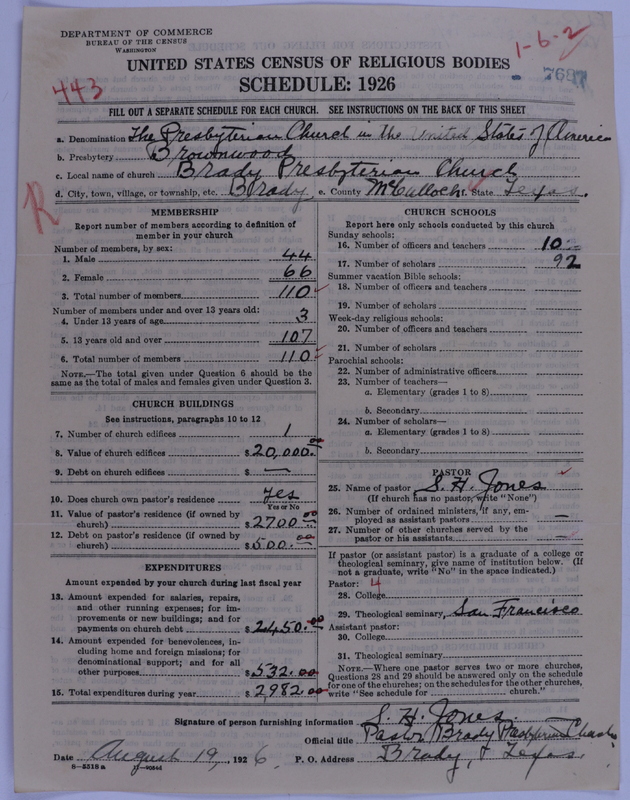 DEPARTMENT OF COMMERCE
BUREAU OF THE CENSUS
WASHINGTON
1-6-2
UNITED STATES CENSUS OF RELIGIOUS BODIES
7697
443
SCHEDULE: 1926
FILL OUT A SEPARATE SCHEDULE FOR EACH CHURCH. SEE INSTRUCTIONS ON THE BACK OF THIS SHEET
a. Denomination The Presbyterian Church in the United States of America
b. Presbytery Brownwood
c. Local name of church Brady Presbyterian Church
d. City, town, village, or township, etc. Brady e. County McCulloch f. State Texas.
R
MEMBERSHIP
Report number of members according to definition of
member in your church
Number of members, by sex:
1. Male 44
2. Female 66
3. Total number of members 110
Number of members under and over 13 years old:
4. Under 13 years of age 3
5. 13 years old and over 107
6. Total number of members 110
NOTE.—The total given under Question 6 should be
the same as the total of males and females given under Question 3.
CHURCH BUILDINGS
See instructions, paragraphs 10 to 12
7. Number of church edifices 1
8. Value of church edifices $ 20,000.00
9. Debt on church edifices $ —
10. Does church own pastor's residence yes
Yes or No
11. Value of pastor's residence (if owned by
church) $ 2700.00
12. Debt on pastor's residence (if owned by
church) $ 500.00
EXPENDITURES
Amount expended by your church during last fiscal year
13. Amount expended for salaries, repairs,
and other running expenses; for im-
provements or new buildings; and for
payments on church debt $ 2450.00
14. Amount expended for benevolences, in-
cluding home and foreign missions; for
denominational support; and for all
other purposes $ 532.00
15. Total expenditures during year $ 2982.00
CHURCH SCHOOLS
Report here only schools conducted by this church
Sunday schools:
16. Number of officers and teachers 10
17. Number of scholars 92
Summer vacation Bible schools:
18. Number of officers and teachers
19. Number of scholars
Week-day religious schools:
20. Number of officers and teachers
21. Number of scholars
Parochial schools:
22. Number of administrative officers
23. Number of teachers—
a. Elementary (grades 1 to 8)
b. Secondary
24. Number of scholars—
a. Elementary (grades 1 to 8)
b. Secondary
PASTOR
25. Name of pastor S. H. Jones
(If church has no pastor, write "None")
26. Number of ordained ministers, if any, em-
ployed as assistant pastors —
27. Number of other churches served by the
pastor or his assistants —
If pastor (or assistant pastor) is a graduate of a college or
theological seminary, give name of institution below. (If
not a graduate, write "No" in the space indicated.)
Pastor: 4
28. College
29. Theological seminary, San Francisco
Assistant pastor:
30. College
31. Theological seminary
NOTE.—Where one pastor serves two or more churches,
Questions 28 and 29 should be answered only on the schedule
for one of the churches; on the schedules for the other churches,
write "See schedule for ........ church."
Signature of person furnishing information S. H. Jones
Official title Pastor Brady Presbyterian Church
Date August 19, 1926. P. O. Address Brady, Texas
8—5518a 11—90544